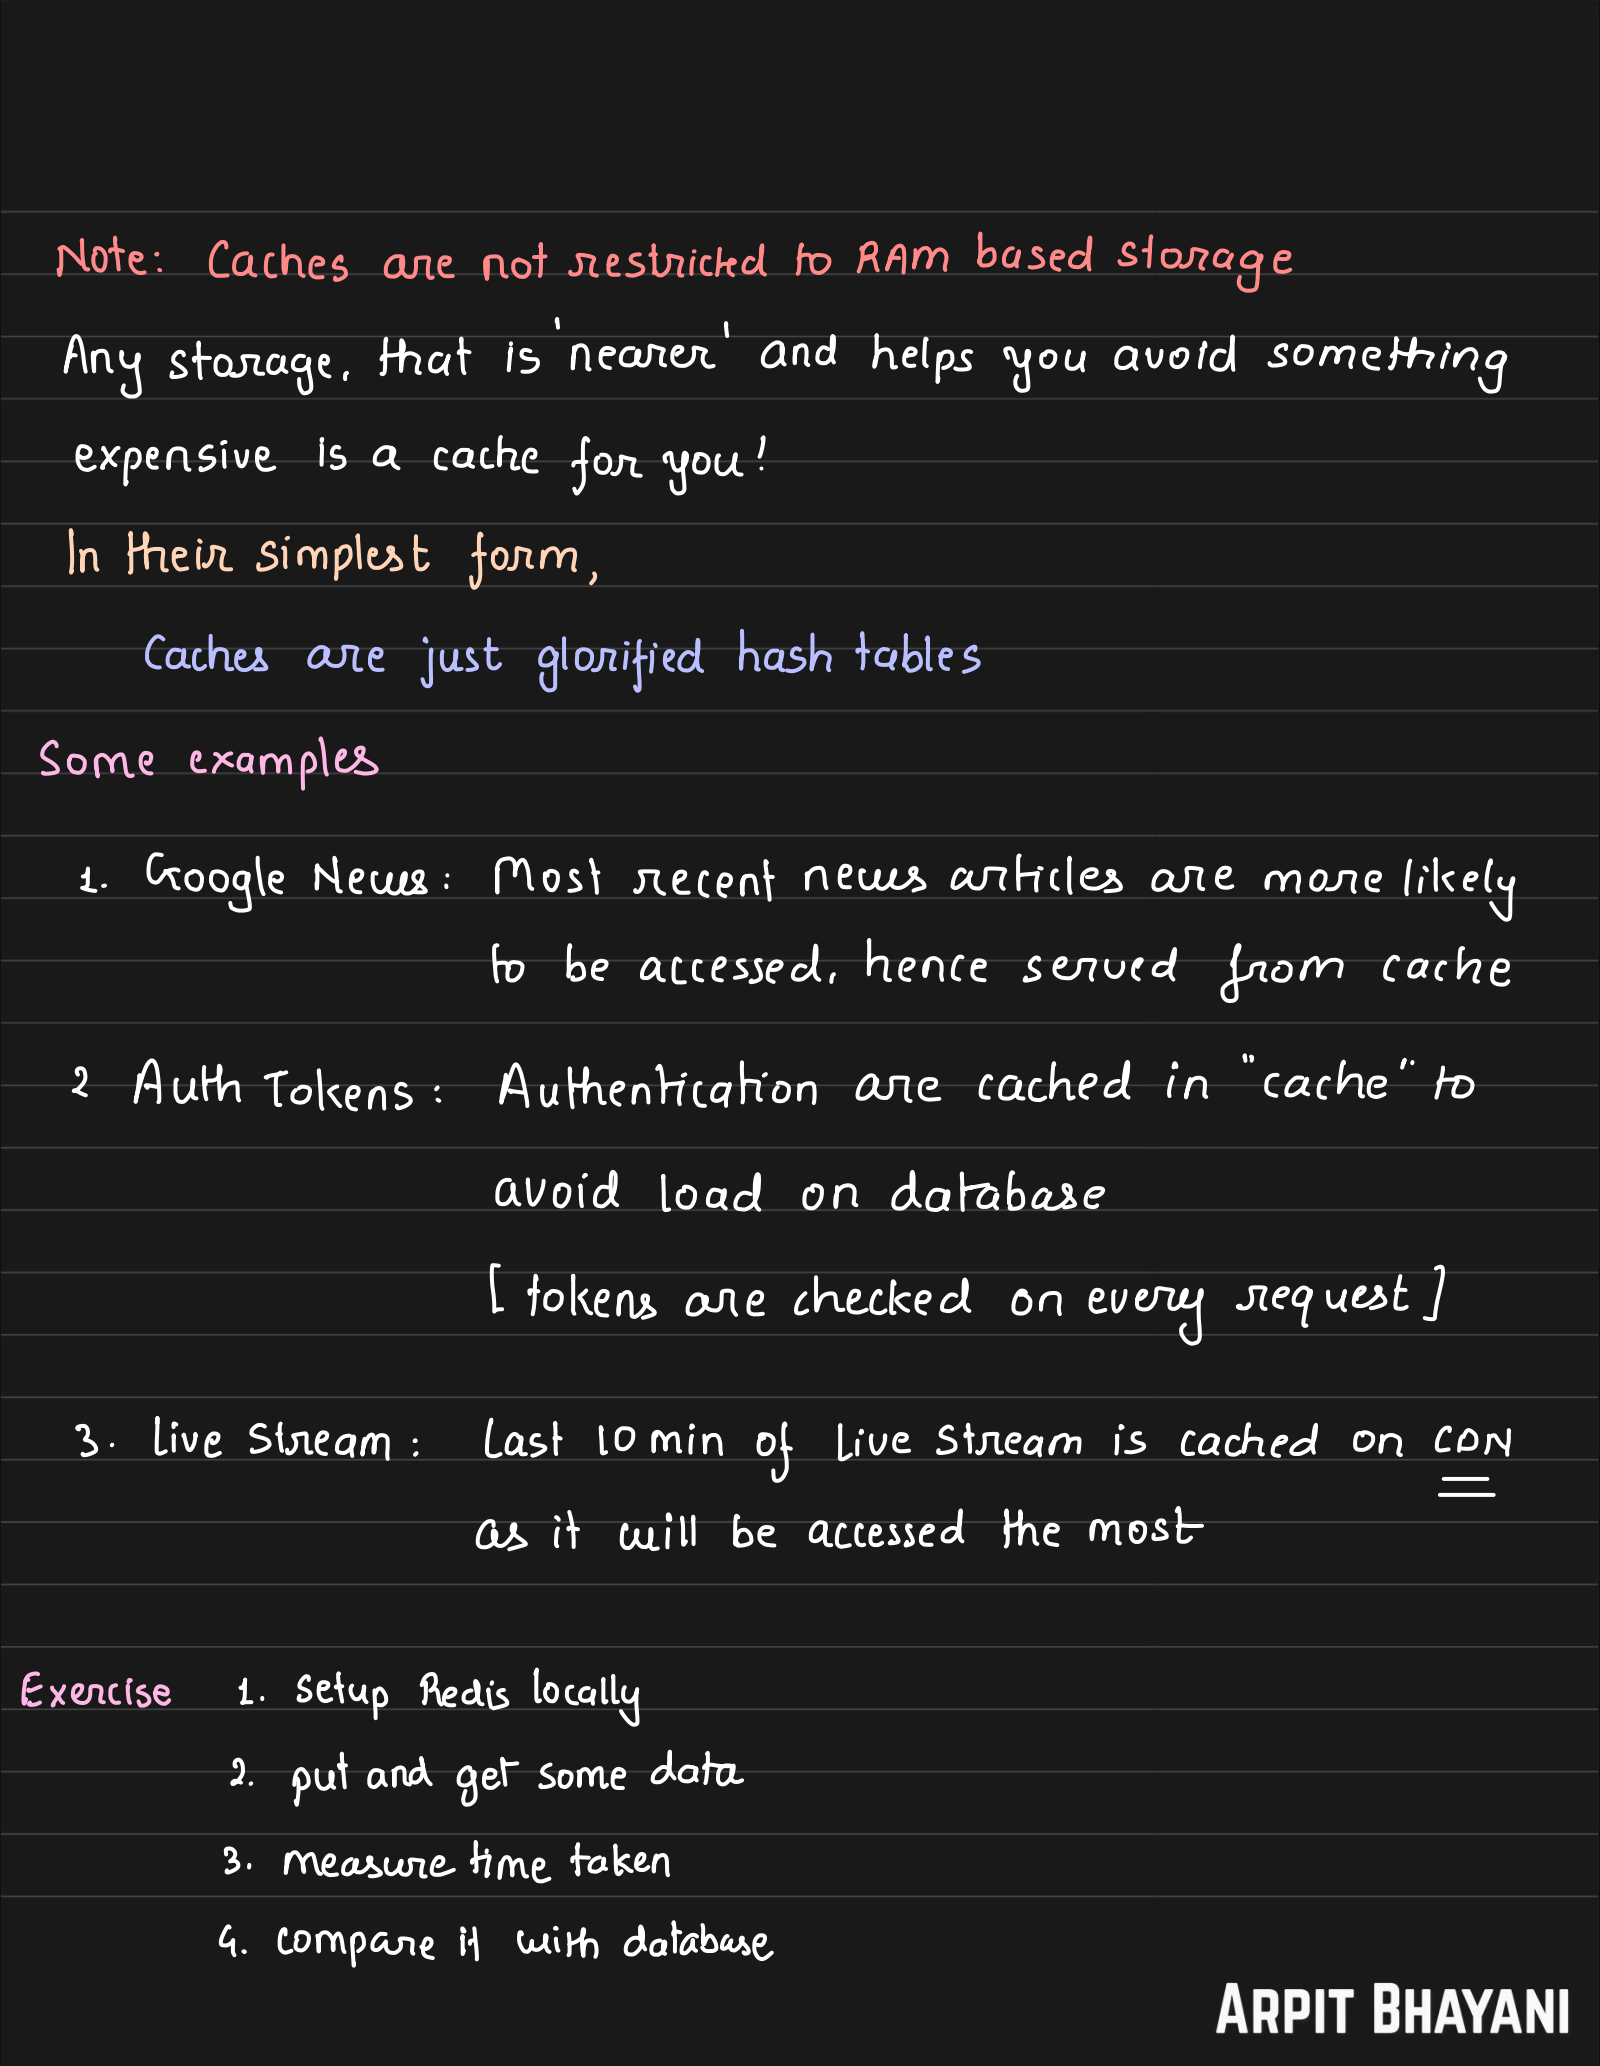 Note: Caches are not restricted to RAM based storage
Any storage, that is 'nearer' and helps you avoid something
expensive is a cache for you!
In their simplest form,
Caches are just glorified hash tables
Some examples
1. Google News: Most recent news articles are more likely
to be accessed, hence served from cache
2 Auth Tokens: Authentication are cached in "cache" to
avoid load on database
[tokens are checked on every request]
3. Live Stream: Last 10 min of Live stream is cached on CDN
as it will be accessed the most
Exercise 1. setup Redis locally
2. put and get some data
3. measure time taken
4. compare it with database
ARPIT BHAYANI